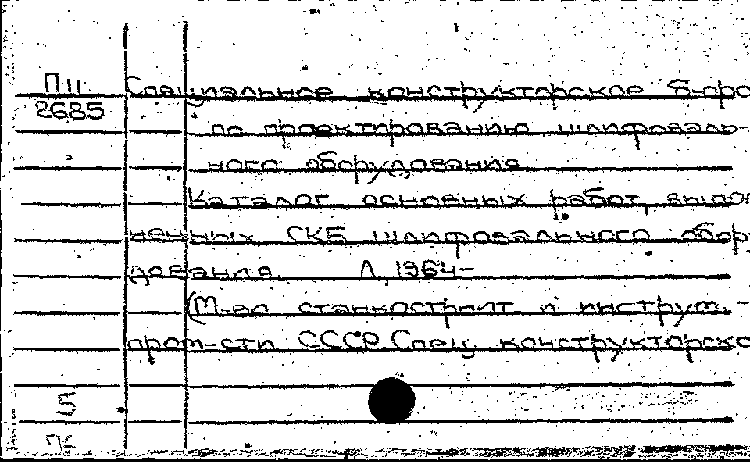 П11 Специальное конструкторское бюро
2685 по проектированию шлифоваль-
ного оборудования
Каталог основных работ, выпол
ненных СКБ шлифовального обору
дования. Л, 1964-
(М-во станкостроит и инструм. -
пром-сти СССР Спец. конструкторско
5